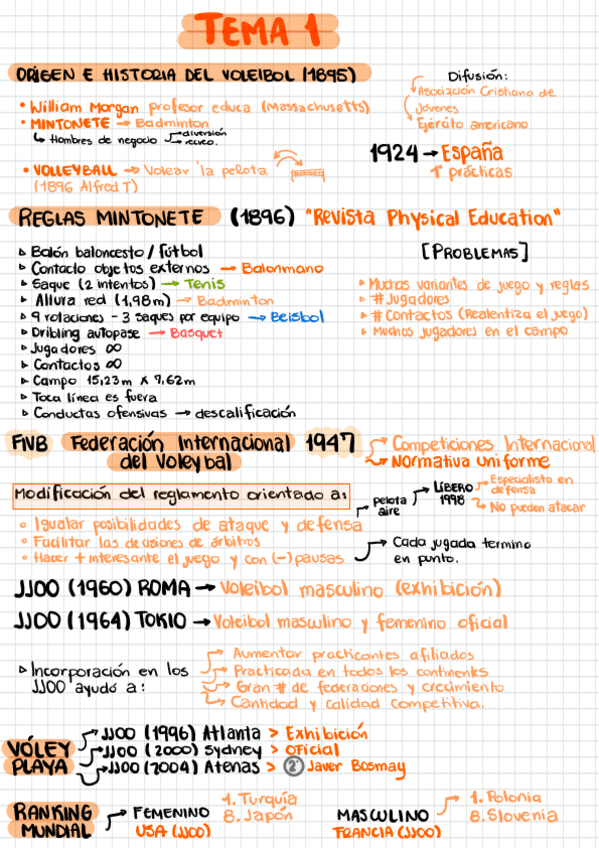 TEMA 1
ORIGEN E HISTORIA DEL VOLEIBOL (1895)
• William Morgan profesor educa (Massachusetts)
• MINTONETE → Badminton
↳ Hombres de negocio → diversión
→ recreo.
• VOLLEYBALL → Volear la pelota
(1896 Alfred T)
Difusión:
Asociación Cristiana de
Jóvenes
Ejército americano
1924 → España
1º prácticas
REGLAS MINTONETE (1896) "Revista Physical Education"
▹ Balón baloncesto / fútbol
▹ Contacto objetos externos → Balonmano
▹ Saque (2 intentos) → Tenis
▹ Altura red (1,98m) → Badminton
▹ 9 rotaciones - 3 saques por equipo → Beisbol
▹ Dribling autopase → Basquet
▹ Jugadores ∞
▹ Contactos ∞
▹ Campo 15,23m x 7,62m
▹ Toca línea es fuera
▹ Conductas ofensivas → descalificación
[PROBLEMAS]
▹ Muchas variantes de juego y reglas
▹ # Jugadores
▹ # Contactos (Realentiza el juego)
▹ Muchos jugadores en el campo
FIVB Federación Internacional 1947
del Voleybal
→ Competiciones Internacional
→ Normativa uniforme
Modificación del reglamento orientado a:
○ Igualar posibilidades de ataque y defensa
○ Facilitar las decisiones de árbitros
○ Hacer + interesante el juego y con (-) pausas
pelota
aire
→ LÍBERO
1998
→ Especialista en
defensa
→ No pueden atacar
→ Cada jugada termino
en punto.
JJOO (1960) ROMA → Voleibol masculino (exhibición)
JJOO (1964) TOKIO → Voleibol masculino y femenino oficial
▹ Incorporación en los
JJOO ayudó a:
→ Aumentar practicantes afiliados
→ Practicada en todos los continentes
→ Gran # de federaciones y crecimiento
→ Cantidad y calidad competitiva.
VÓLEY
PLAYA
→ JJOO (1996) Atlanta > Exhibición
→ JJOO (2000) Sydney > Oficial
→ JJOO (2004) Atenas > 2º Javer Bosmay
RANKING
MUNDIAL
→ FEMENINO
USA (JJOO)
1. Turquía
8. Japón
MASCULINO
FRANCIA (JJOO)
1. Polonia
8. Slovenia